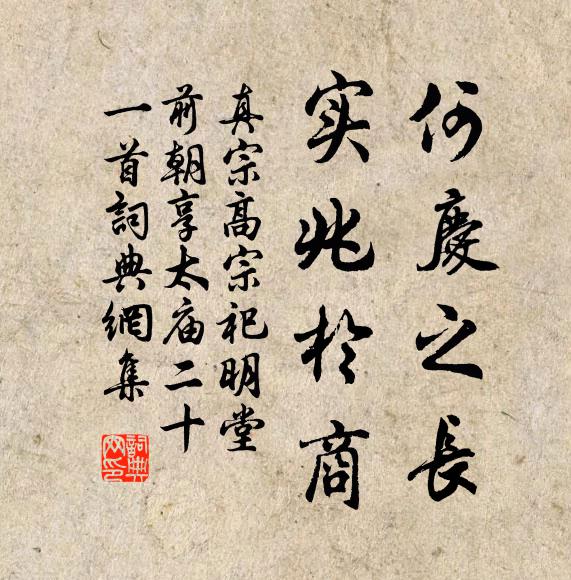 何慶之長
实兆於商
真宗高宗祀明堂
前朝享太庙二十
一首詞典網集
詞典网印